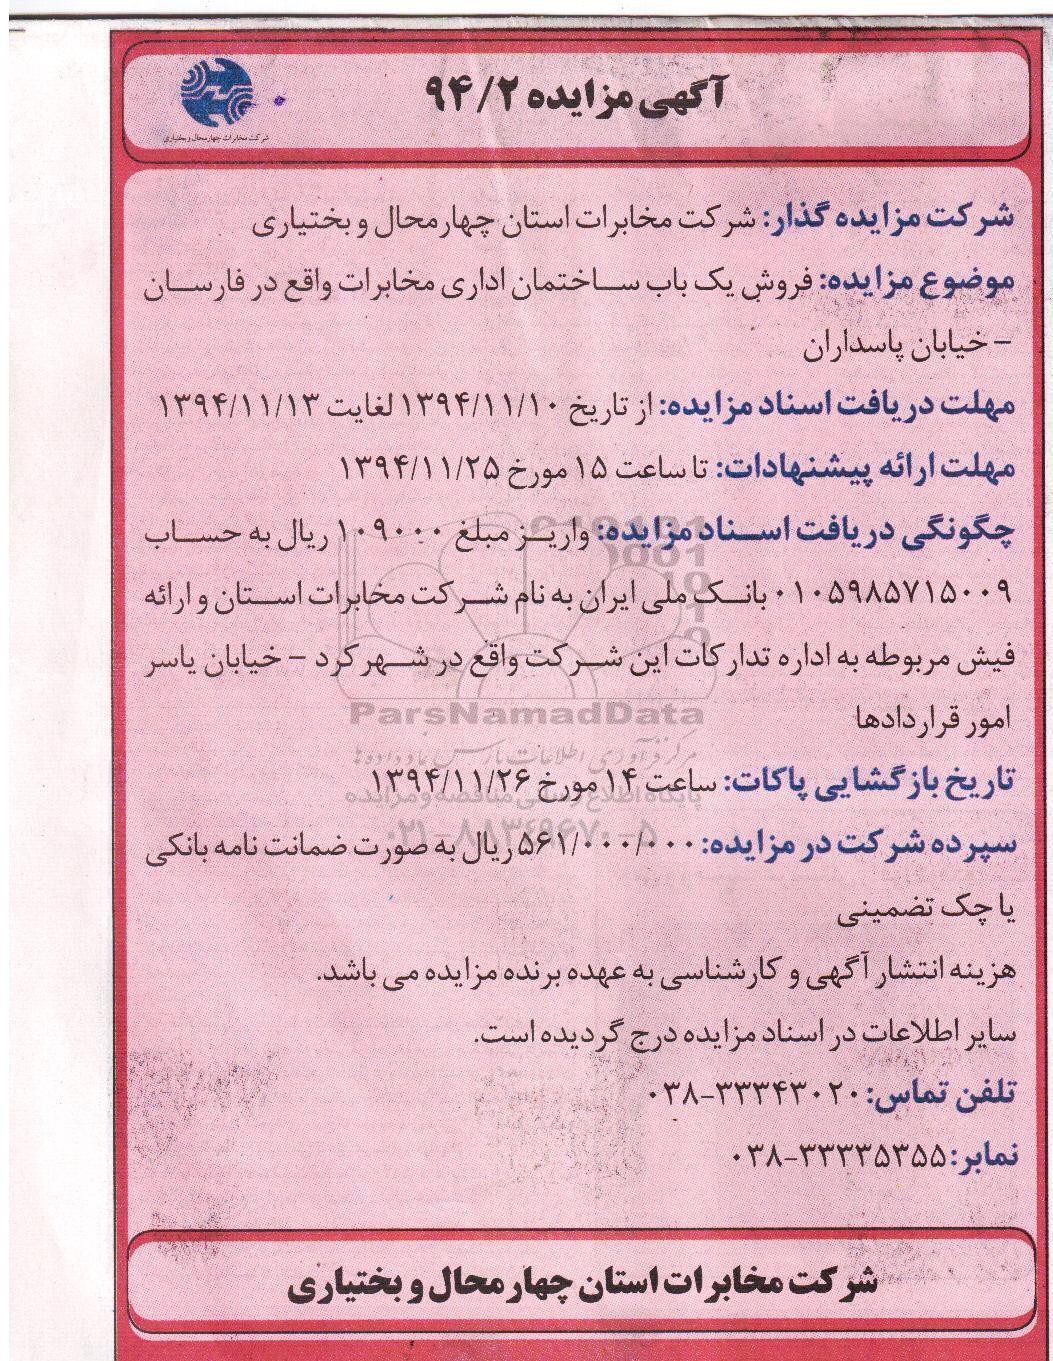 آگهی مزایده ۹۴/۲
شرکت مخابرات چهارمحال و بختیاری
شرکت مزایده گذار: شرکت مخابرات استان چهارمحال و بختیاری
موضوع مزایده: فروش یک باب ساختمان اداری مخابرات واقع در فارسان
– خیابان پاسداران
مهلت دریافت اسناد مزایده: از تاریخ ۱۳۹۴/۱۱/۱۰ لغایت ۱۳۹۴/۱۱/۱۳
مهلت ارائه پیشنهادات: تا ساعت ۱۵ مورخ ۱۳۹۴/۱۱/۲۵
چگونگی دریافت اسناد مزایده: واریز مبلغ ۱۰۹۰۰۰۰ ریال به حساب
۰۱۰۵۹۸۵۷۱۵۰۰۹ بانک ملی ایران به نام شرکت مخابرات استان و ارائه
فیش مربوطه به اداره تدارکات این شرکت واقع در شهرکرد – خیابان یاسر
امور قراردادها
ParsNamadData
مرکز فرآوری اطلاعات پارس نماد داده ها
تاریخ بازگشایی پاکات: ساعت ۱۴ مورخ ۱۳۹۴/۱۱/۲۶
پایگاه اطلاع رسانی مناقصه و مزایده
۰۲۱-۸۸۳۴۹۶۷۰-۵
سپرده شرکت در مزایده: ۵۶۱/۰۰۰/۰۰۰ ریال به صورت ضمانت نامه بانکی
یا چک تضمینی
هزینه انتشار آگهی و کارشناسی به عهده برنده مزایده می باشد.
سایر اطلاعات در اسناد مزایده درج گردیده است.
تلفن تماس: ۰۳۸-۳۳۳۴۳۰۲۰
نمابر: ۰۳۸-۳۳۳۳۵۳۵۵
شرکت مخابرات استان چهارمحال و بختیاری